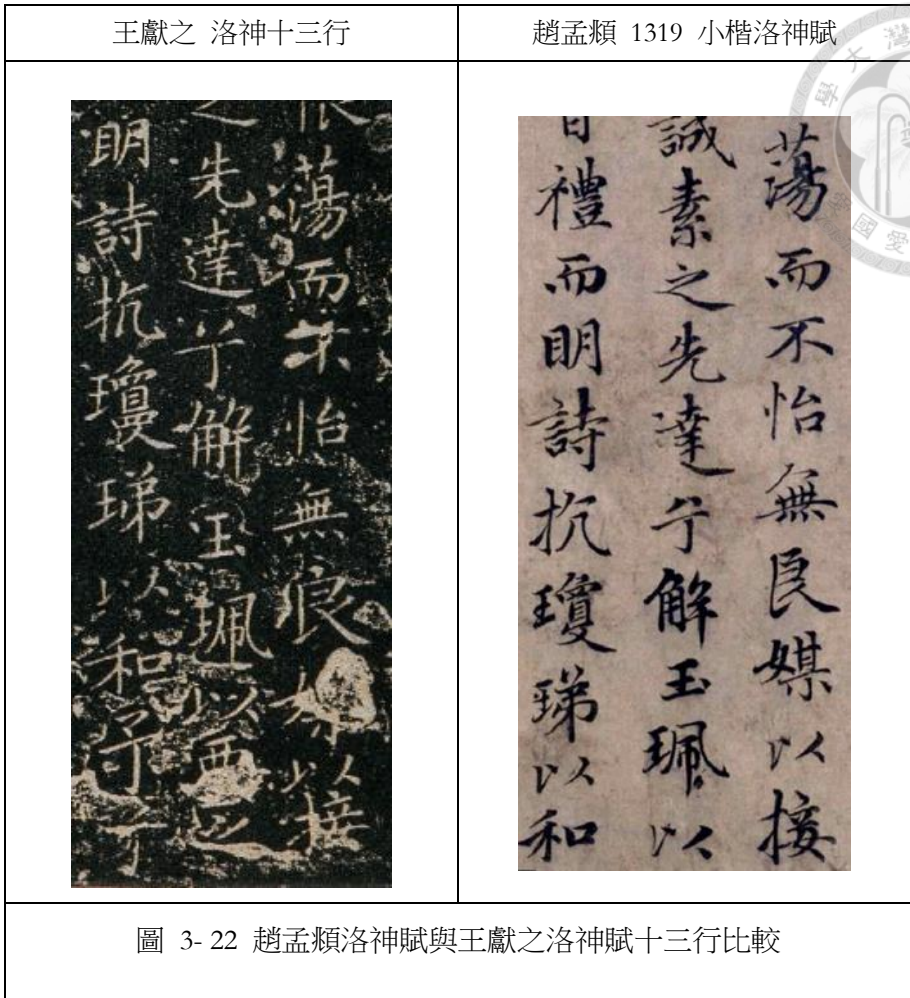 王獻之 洛神十三行
趙孟頫 1319 小楷洛神賦
蕩而不怡無良媒以接
之先達兮解玉珮以要之
明詩抗瓊珶以和予兮
蕩而不怡無良媒以接
誠素之先達兮解玉珮以
禮而明詩抗瓊珶以和
圖 3- 22 趙孟頫洛神賦與王獻之洛神賦十三行比較
灣大學
國愛